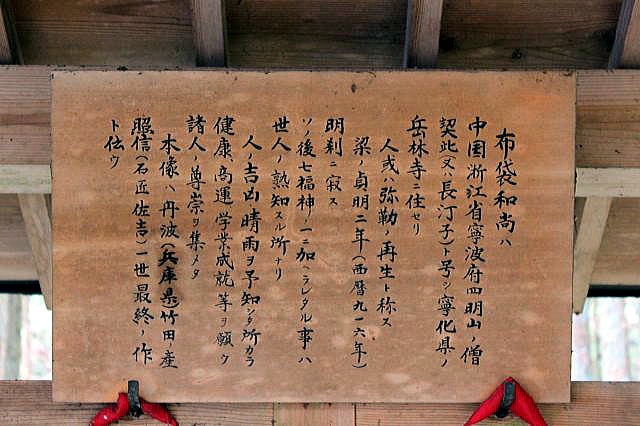 布袋和尚ハ
中国浙江省寧波府四明山ノ僧
契此(又ハ長汀子)ト号シ寧化県ノ
岳林寺ニ住セリ
人或ハ弥勒ノ再生ト称ス
梁ノ貞明二年(西暦九一六年)
明刹ニ寂ス
ソノ後七福神ノ一ニ加ヘラレタル事ハ
世人ノ熟知スル所ナリ
人ノ吉凶晴雨ヲ予知シタ所カラ
健康、商運、学業成就等ヲ願ウ
諸人ノ尊崇ヲ集メタ
本像ハ丹波(兵庫県)竹田ノ産
照信(石匠佐吉)一世最終ノ作
ト伝ウ